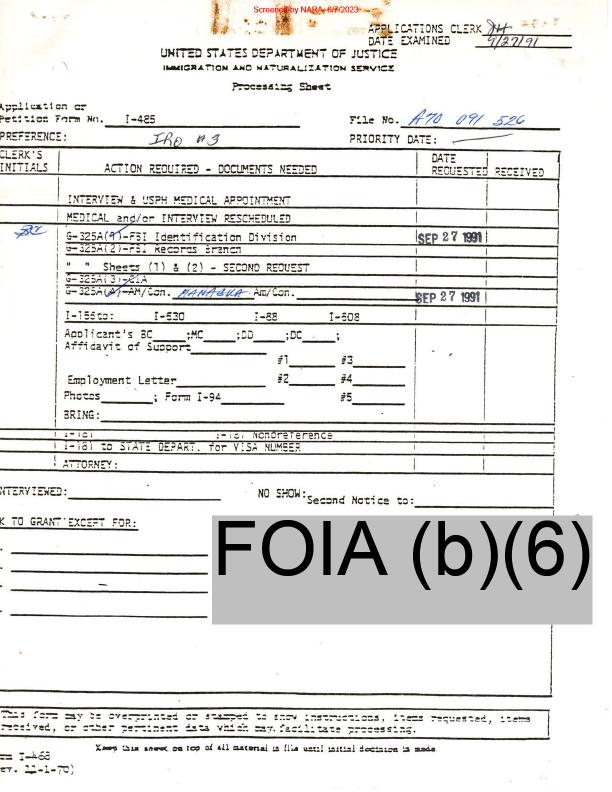 Screened by NARA, 6/7/2023
APPLICATIONS CLERK
DATE EXAMINED 9/27/91
UNITED STATES DEPARTMENT OF JUSTICE
IMMIGRATION AND NATURALIZATION SERVICE
Processing Sheet
Application or
Petition Form No. I-485 File No. A70 091 526
PREFERENCE: IRO #3 PRIORITY DATE:
CLERK'S INITIALS ACTION REQUIRED - DOCUMENTS NEEDED DATE REQUESTED RECEIVED
INTERVIEW & USPH MEDICAL APPOINTMENT
MEDICAL and/or INTERVIEW RESCHEDULED
G-325A(1)-FBI Identification Division SEP 27 1991
G-325A(2)-FBI Records Branch
" " Sheets (1) & (2) - SECOND REQUEST
G-325A(3)-CIA
G-325A( )-AM/Con. MANAGUA Am/Con. SEP 27 1991
I-156to: I-530 I-88 I-508
Applicant's BC ;MC ;DD ;DC ;
Affidavit of Support
#1 #3
Employment Letter #2 #4
Photos ; Form I-94 #5
BRING:
I-181 I-181 Nonpreference
I-181 to STATE DEPART. for VISA NUMBER
ATTORNEY:
NTERVIEWED: NO SHOW: Second Notice to:
K TO GRANT EXCEPT FOR:
FOIA (b)(6)
This form may be overprinted or stamped to show instructions, items requested, items
received, or other pertinent data which may facilitate processing.
Keep this sheet on top of all material in file until initial decision is made.
rm I-468
ev. 11-1-70)